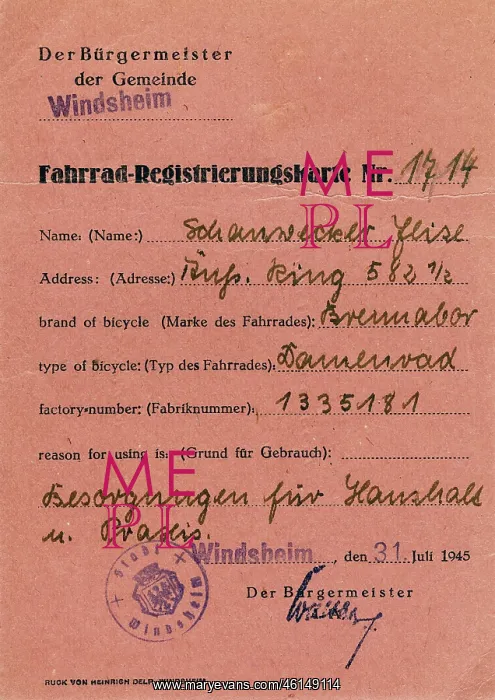 Der Bürgermeister
der Gemeinde
Windsheim
Fahrrad-Registrierungskarte Nr. 1714
Name: (Name:) Schauwecker Elise
Address: (Adresse:) Äuß. Ring 582 1/2
brand of bicycle (Marke des Fahrrades): Brennabor
type of bicycle: (Typ des Fahrrades): Damenrad
factory-number: (Fabriknummer): 1335181
reason for using is: (Grund für Gebrauch):
Besorgungen für Haushalt
u. Praxis.
Windsheim, den 31. Juli 1945
Der Bürgermeister
Stadt
Windsheim
RUCK VON HEINRICH DELP, WINDSHEIM
ME
PL
ME
PL
www.maryevans.com/46149114